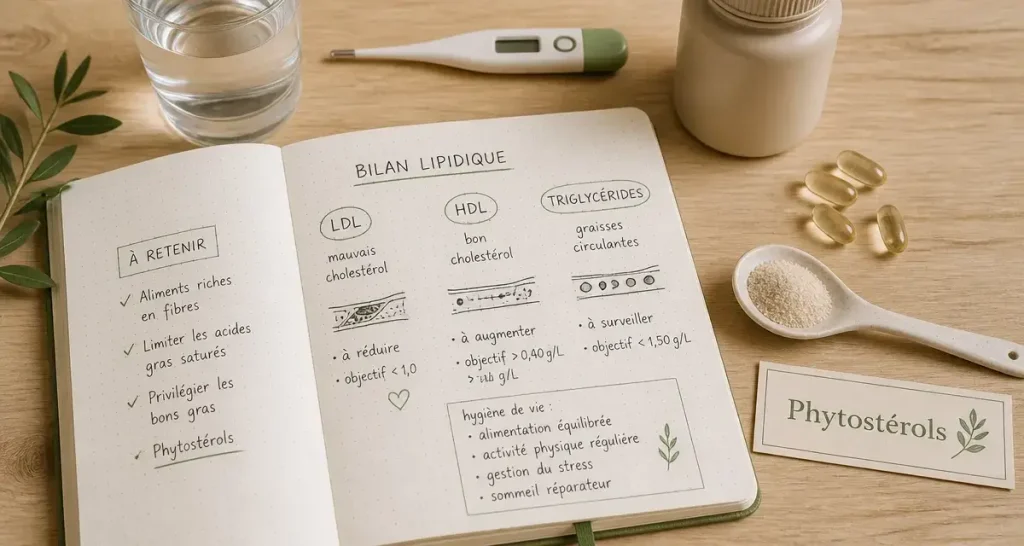 À RETENIR
✓ Aliments riches
en fibres
✓ Limiter les acides
gras saturés
✓ Privilégier les
bons gras
✓ Phytostérols
BILAN LIPIDIQUE
LDL
mauvais
cholestérol
• à réduire
• objectif < 1,0
HDL
bon
cholestérol
• à augmenter
• objectif > 0,40 g/L
> g/L
TRIGLYCÉRIDES
graisses
circulantes
• à surveiller
• objectif < 1,50 g/L
hygiène de vie :
• alimentation équilibrée
• activité physique régulière
• gestion du stress
• sommeil réparateur
Phytostérols